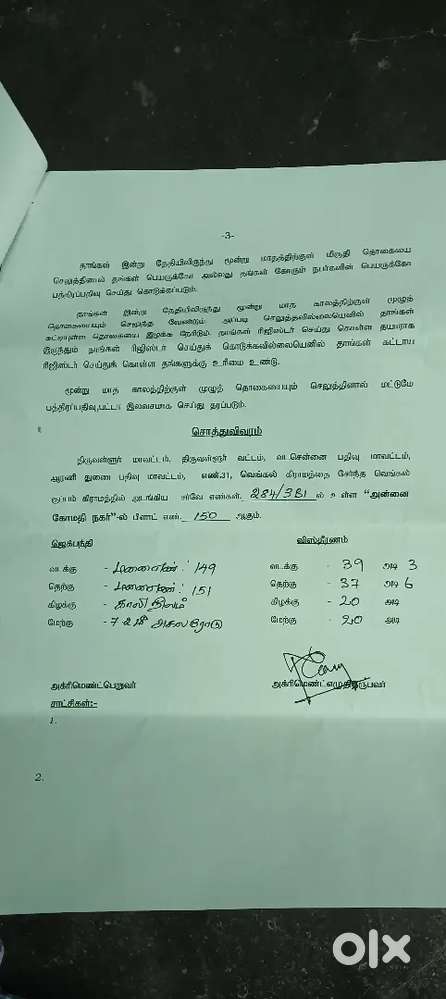 -3-
தாங்கள் இன்று தேதியிலிருந்து மூன்று மாதத்திற்குள் மீதித் தொகையை
செலுத்தினால் தங்கள் பெயருக்கோ அல்லது தங்கள் கோரும் நபர்களின் பெயருக்கோ
பத்திரப்பதிவு செய்து கொடுக்கப்படும்.
தாங்கள் இன்று தேதியிலிருந்து மூன்று மாத காலத்திற்குள் முழுத்
தொகையையும் செலுத்த வேண்டும். அப்படி செலுத்தவில்லையெனில் தாங்கள்
கட்டியுள்ள தொகையை இழக்க நேரிடும். நாங்கள் ரிஜிஸ்டர் செய்து கொள்ள தயாராக
இருந்தும் நாங்கள் ரிஜிஸ்டர் செய்துக் கொடுக்கவில்லையெனில் தாங்கள் கட்டாய
ரிஜிஸ்டர் செய்துக் கொள்ள தங்களுக்கு உரிமை உண்டு.
மூன்று மாத காலத்திற்குள் முழுத் தொகையையும் செலுத்தினால் மட்டுமே
பத்திரப்பதிவு,பட்டா இலவசமாக செய்து தரப்படும்.
சொத்துவிவரம்
திருவள்ளூர் மாவட்டம், திருவள்ளூர் வட்டம், வடசென்னை பதிவு மாவட்டம்,
ஆரணி துணை பதிவு மாவட்டம், எண்.31, வெங்கல் கிராமத்தை சேர்ந்த வெங்கல்
கிராமத்தில் அடங்கிய சர்வே எண்கள். 284/3B1 ல் உள்ள "அன்னை
கோமதி நகர்"-ல் பிளாட் எண். 150 ஆகும்.
ஜெக்பந்தி விஸ்தீரணம்
வடக்கு - மனைஎண்: 149 வடக்கு - 39 அடி 3
தெற்கு - மனைஎண்: 151 தெற்கு - 37 அடி 6
கிழக்கு - காலி நிலம் கிழக்கு - 20 அடி
மேற்கு - 7.2 மீ அகல ரோடு மேற்கு - 20 அடி
அக்ரிமெண்ட்பெறுவர் அக்ரிமெண்ட்எழுதிதருபவர்
சாட்சிகள்:-
1.
2.
olx